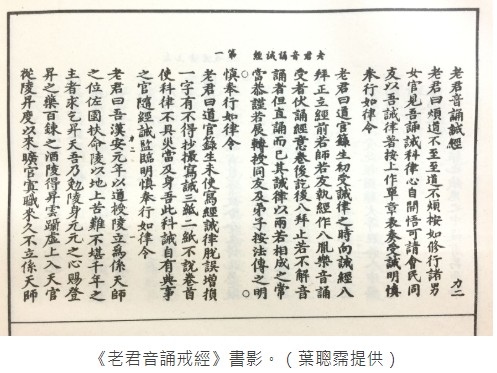 老君音誦誡經 第一
老君音誦誡經 力二
老君曰煩道不至至道不煩按如修行諸男
女官見吾誦誡科律心自開悟可請會民同
友以吾誡律著按上作單章表奏受誡明慎
奉行如律令
老君曰道官籙生初受誡律之時向誡經八
拜正立經前若師若友執經作八胤樂音誦
受者伏誦經意卷後訖後八拜止若不解音
誦者但直誦而已其誡律以兩若相成之常
當恭謹若展轉授同友及弟子按法傳之明
慎奉行如律令
老君曰道官籙生未使寫經誡律脫誤增損
一字有不得抄撮寫誡三紙二紙不說卷首
使科律不具災當及身吾此科誡自有典事
之官隨經誡監臨明慎奉行如律令
老君曰吾漢安元年以道授陵立為係天師
之位佐國扶命陵以地上苦難不堪千年之
主者求乞昇天吾乃勉陵身元元之心賜登
昇之藥百鍊之酒陵得昇雲躡虛上入天官
從陵昇度以來曠官寘職來久不立係天師
《老君音誦戒經》書影。（葉聰霈提供）